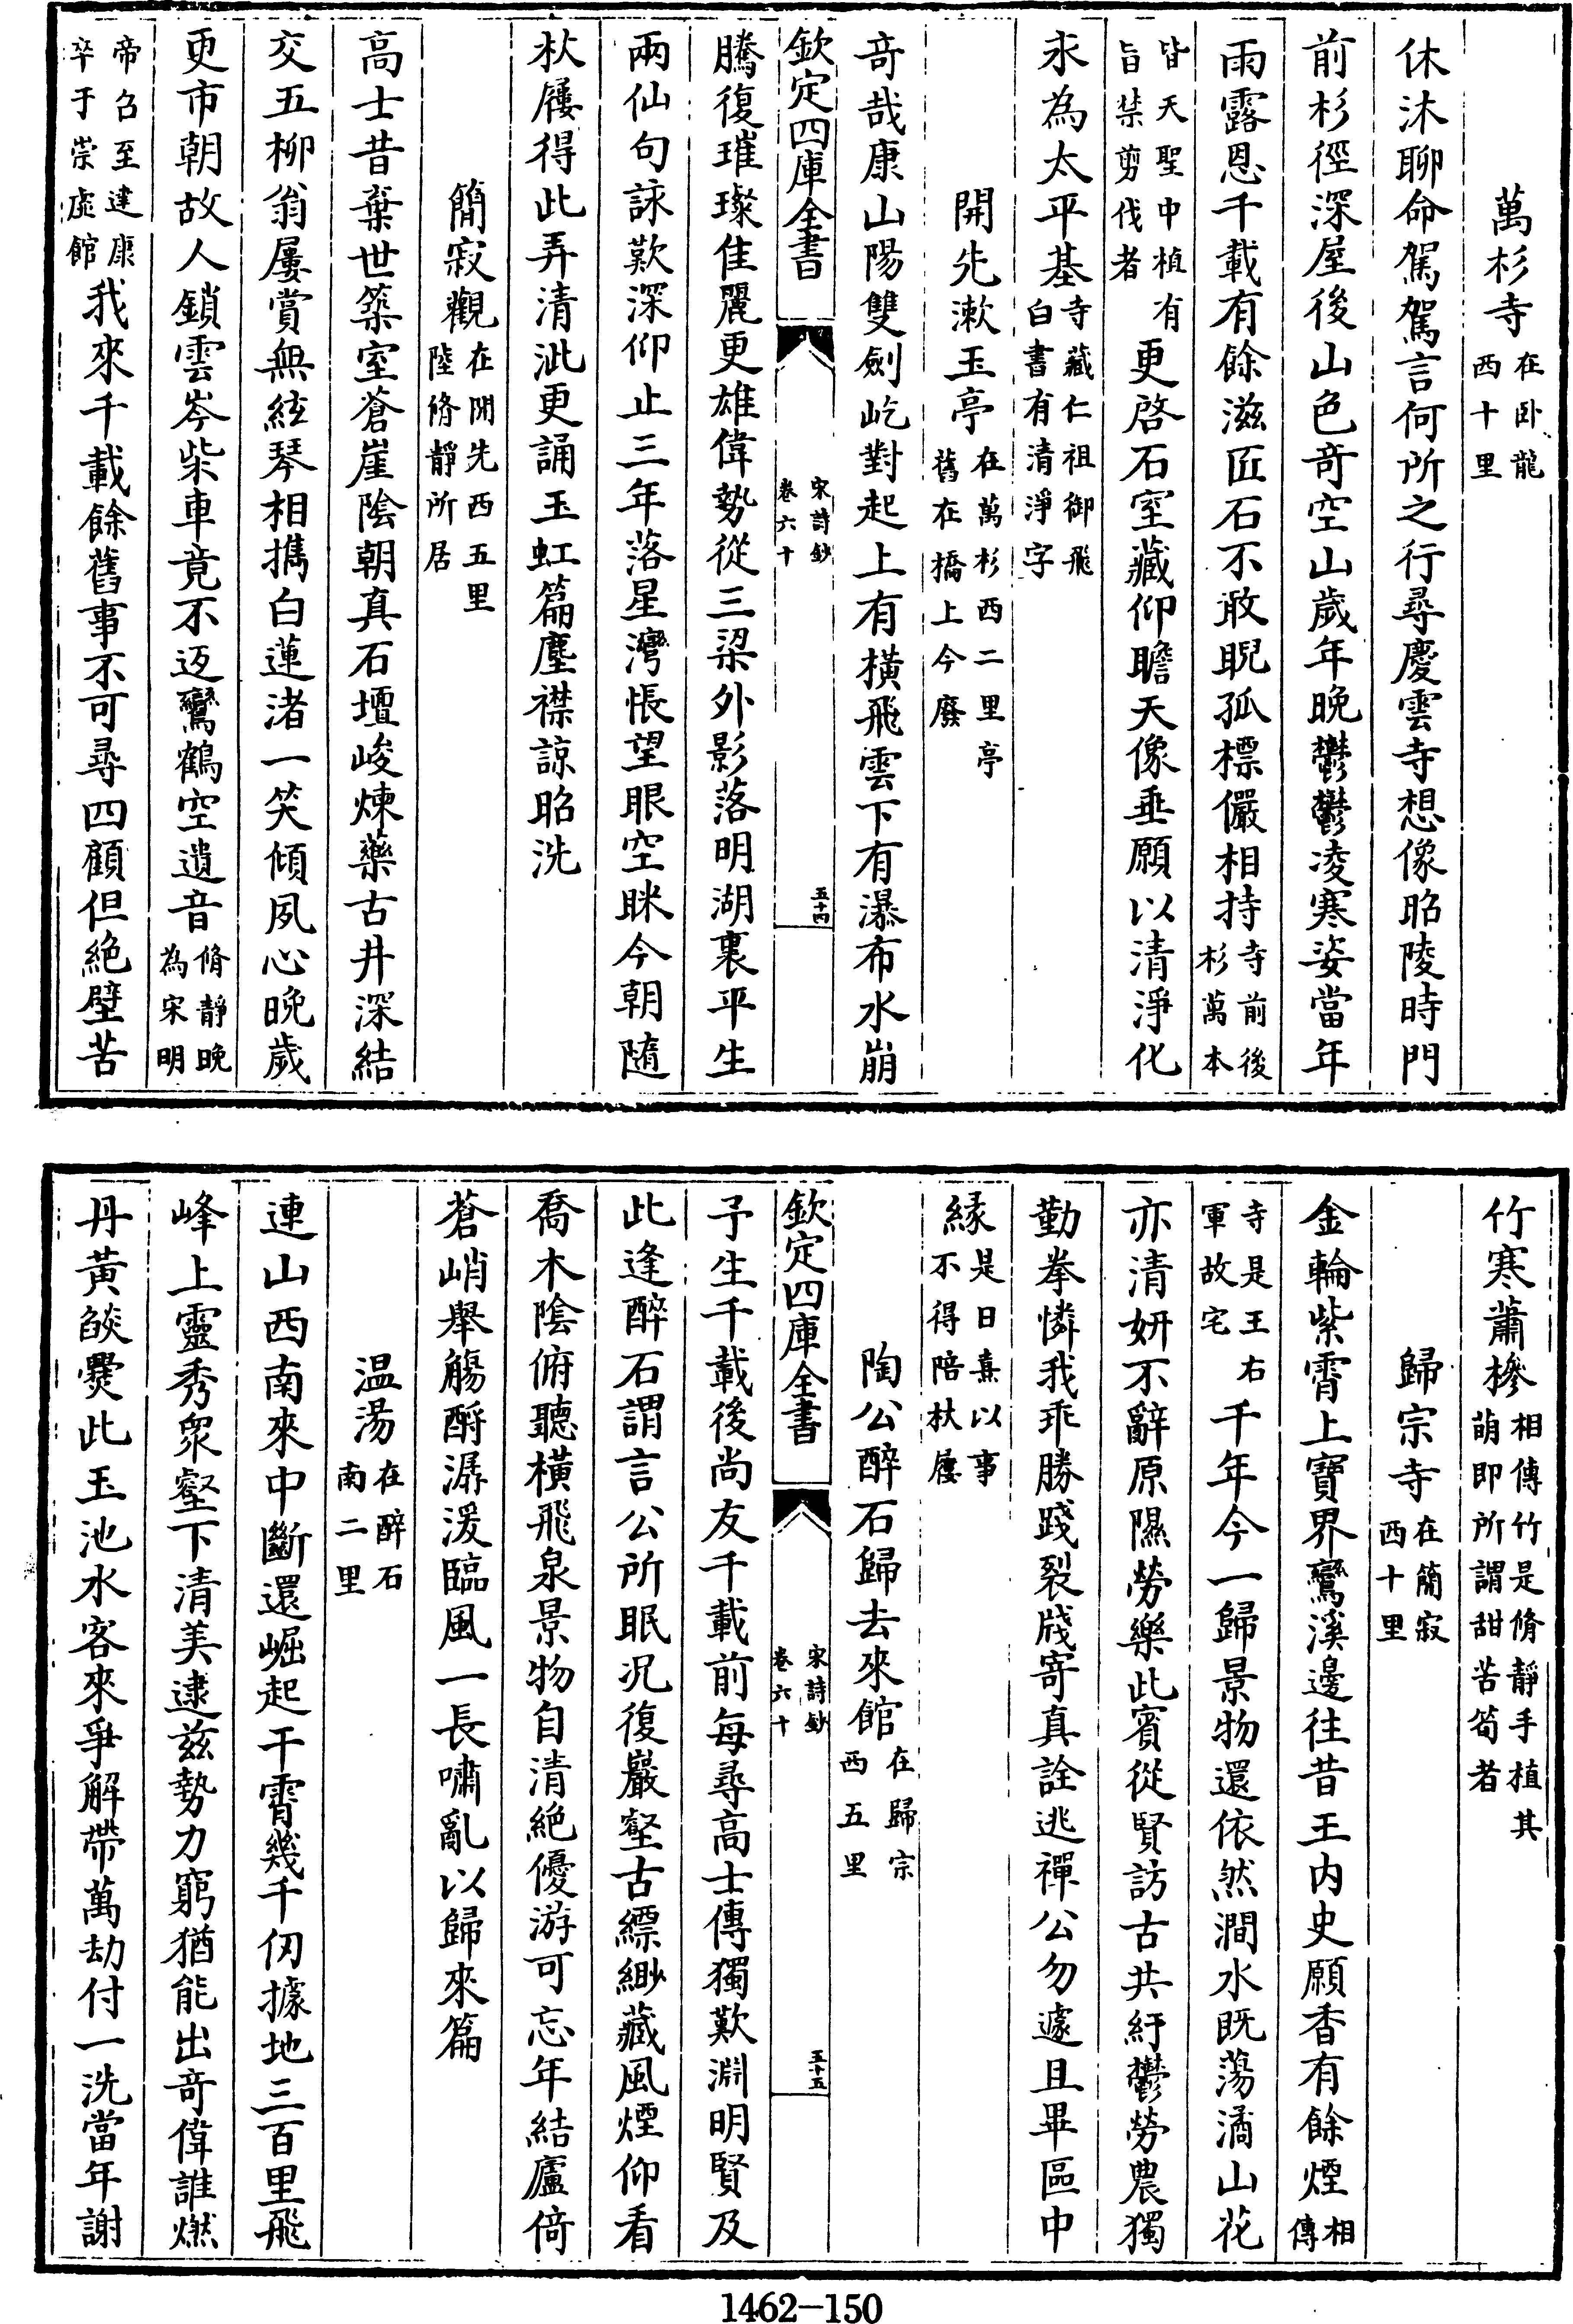 萬杉寺在卧龍西十里
休沐聊命駕駕言何所之行尋慶雲寺想像昭陵時門
前杉徑深屋後山色竒空山歲年晚鬱鬱凌寒姿當年
雨露恩千載有餘滋匠石不敢睨孤標儼相持寺前後杉萬本
皆天聖中植有旨禁剪伐者更啓石室藏仰瞻天像垂願以清淨化
永為太平基寺藏仁祖御飛白書有清淨字
開先漱玉亭在萬杉西二里亭舊在橋上今廢
竒哉康山陽雙劍屹對起上有橫飛雲下有瀑布水崩
欽定四庫全書
宋詩鈔
卷六十
五十四
騰復璀璨佳麗更雄偉勢從三梁外影落明湖裏平生
兩仙句詠歎深仰止三年落星灣悵望眼空眯今朝隨
杖屨得此弄清泚更誦玉虹篇塵襟諒昭洗
簡寂觀在開先西五里陸脩靜所居
高士昔棄世築室蒼崖隂朝真石壇峻煉藥古井深結
交五栁翁屢賞無絃琴相擕白蓮渚一笑傾夙心晚歲
更市朝故人鎖雲岑柴車竟不返鸞鶴空遺音脩靜晚為宋明
帝召至建康卒于崇虛館我來千載餘舊事不可尋四顧但絶壁苦
竹寒蕭槮相傳竹是脩靜手植其萌即所謂甜苦筍者
歸宗寺在簡寂西十里
金輪紫霄上寶界鸞溪邊往昔王内史願香有餘煙相傳
寺是王右軍故宅千年今一歸景物還依然澗水既蕩潏山花
亦清妍不辭原隰勞樂此賓從賢訪古共紆鬱勞農獨
勤拳憐我乖勝踐裂牋寄真詮逃禪公勿遽且畢區中
緣是日熹以事不得陪杖屨
陶公醉石歸去來館在歸宗西五里
欽定四庫全書
宋詩鈔
卷六十
五十五
予生千載後尚友千載前每尋高士傳獨歎淵明賢及
此逢醉石謂言公所眠况復巖壑古縹緲藏風煙仰看
喬木隂俯聽橫飛泉景物自清絶優游可忘年結廬倚
蒼峭舉觴酹潺湲臨風一長嘯亂以歸來篇
温湯在醉石南二里
連山西南來中斷還崛起干霄幾千仞據地三百里飛
峰上靈秀衆壑下清美逮兹勢力窮猶能出竒偉誰燃
丹黃燄爨此玉池水客來爭解帶萬劫付一洗當年謝
1462-150